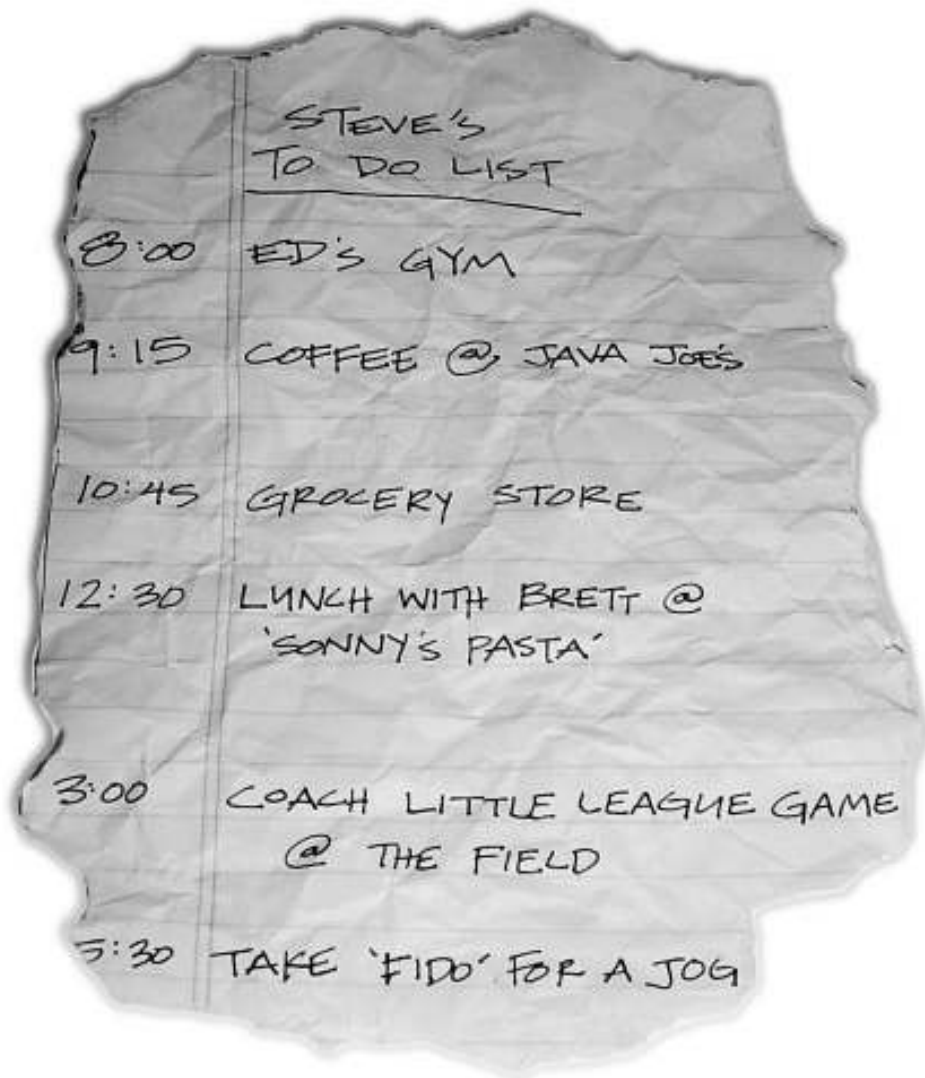 STEVE'S
TO DO LIST
8:00 ED'S GYM
9:15 COFFEE @ JAVA JOE'S
10:45 GROCERY STORE
12:30 LUNCH WITH BRETT @
'SONNY'S PASTA'
3:00 COACH LITTLE LEAGUE GAME
@ THE FIELD
5:30 TAKE 'FIDO' FOR A JOG